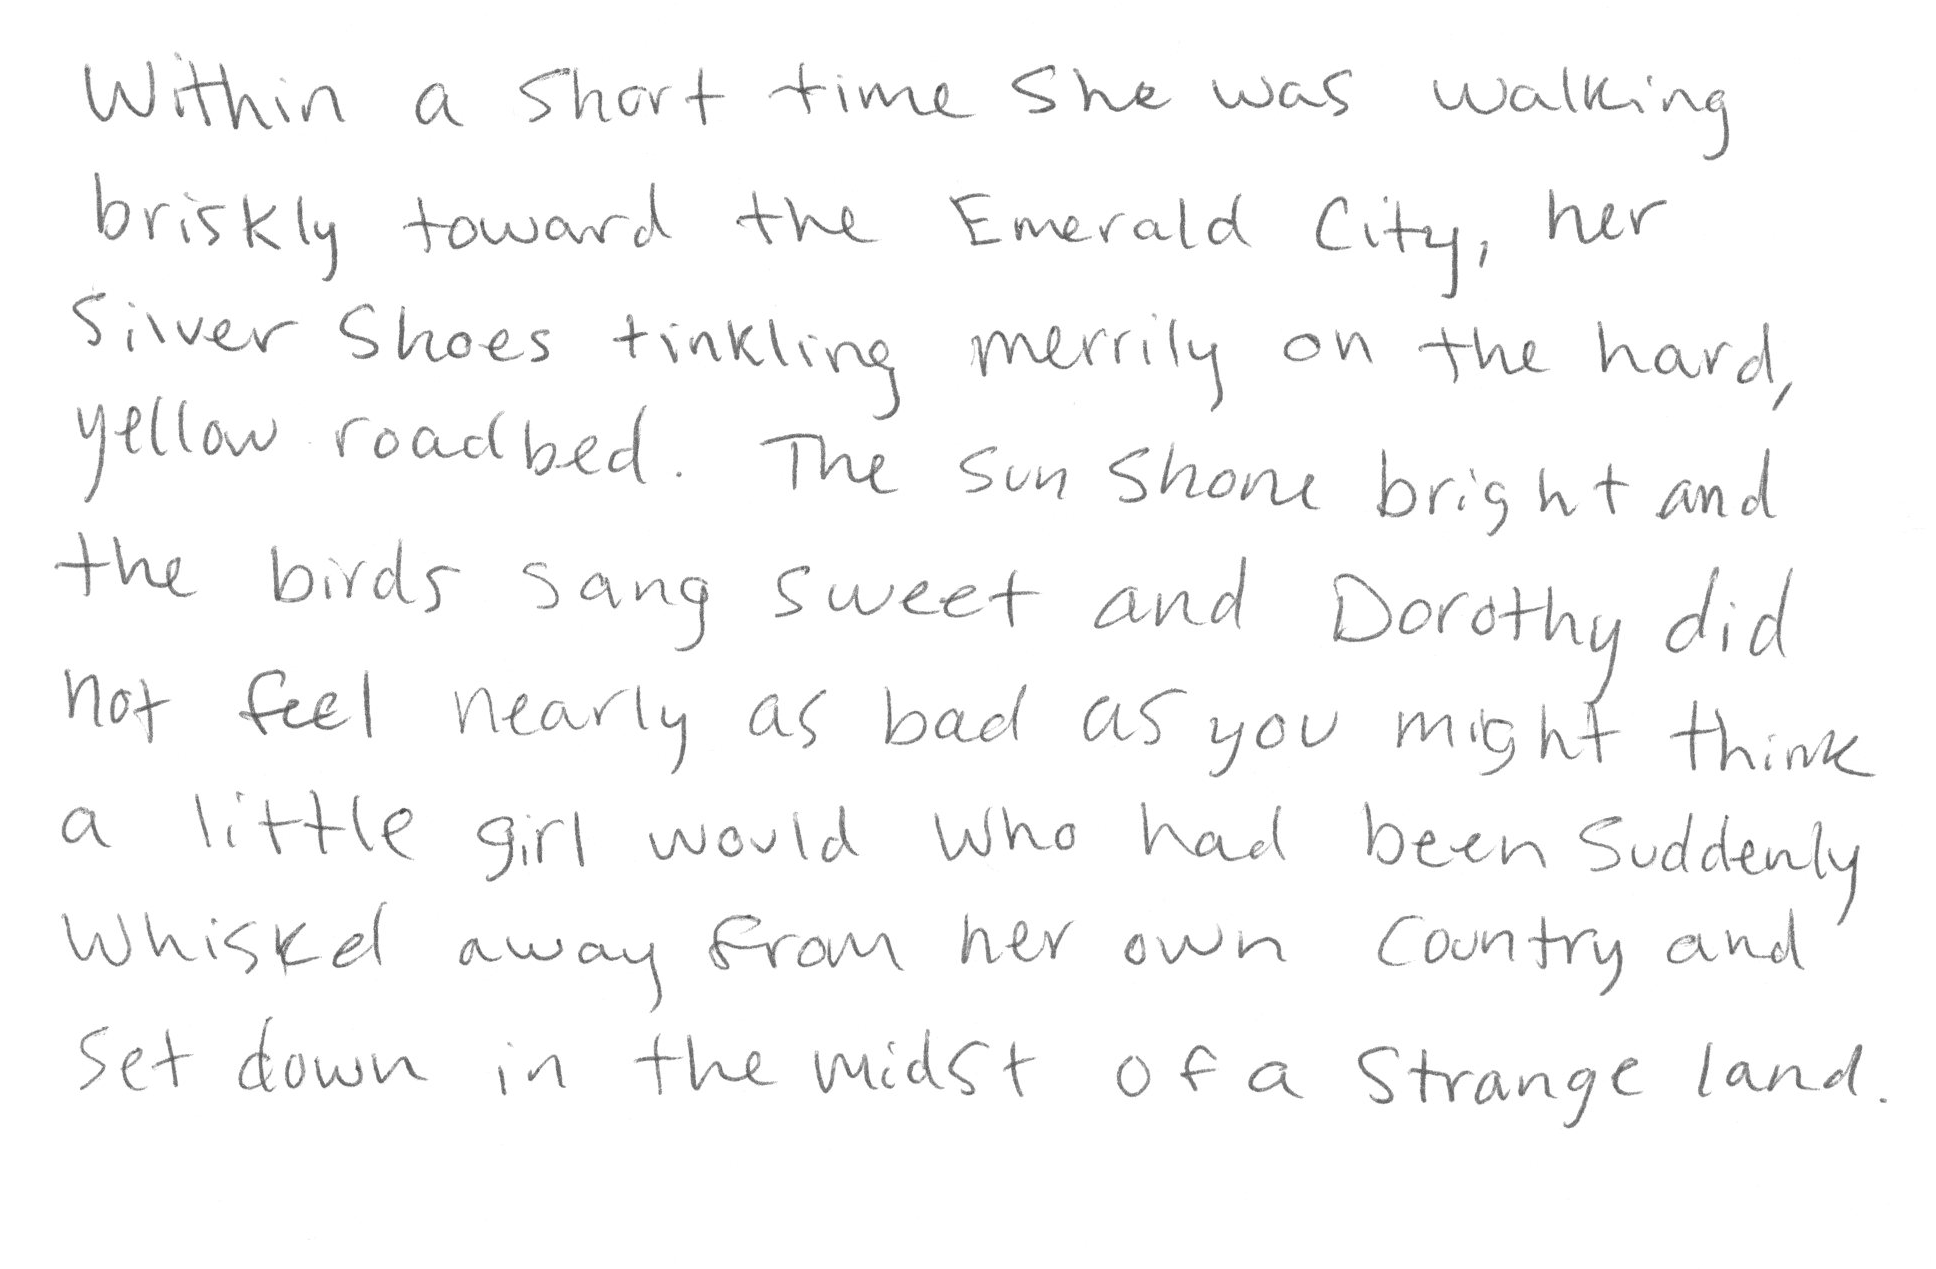 Within a short time she was walking
briskly toward the Emerald City, her
Silver Shoes tinkling merrily on the hard,
yellow roadbed. The sun shone bright and
the birds sang sweet and Dorothy did
not feel nearly as bad as you might think
a little girl would who had been suddenly
whisked away from her own country and
set down in the midst of a strange land.